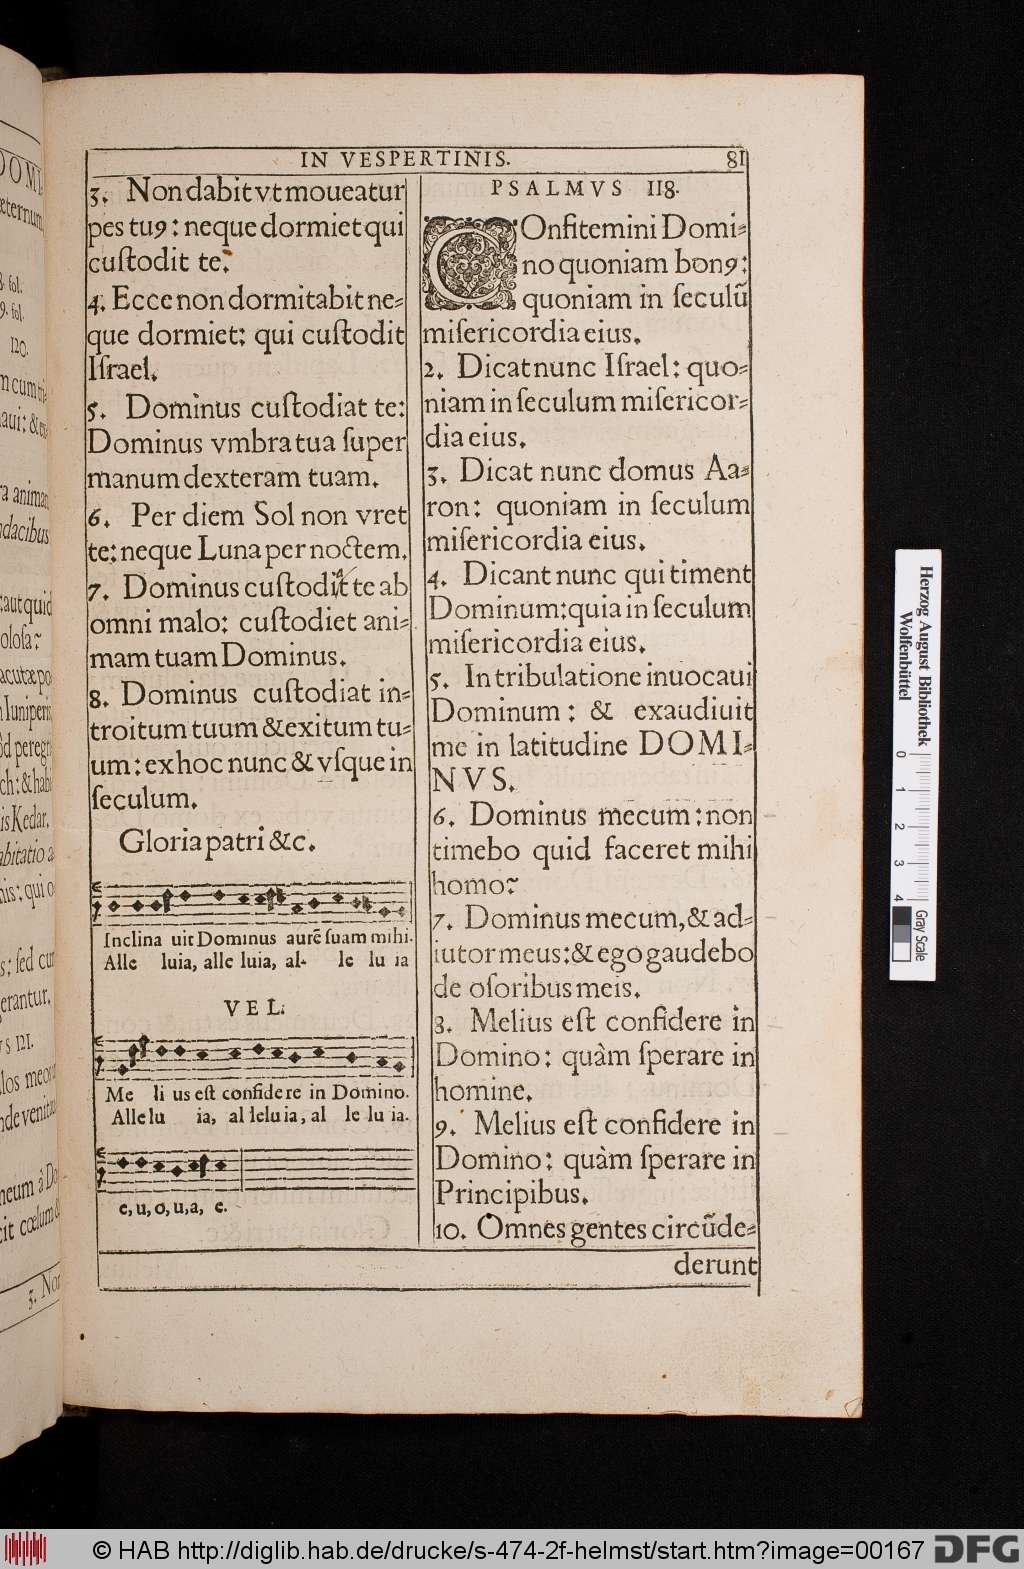 IN VESPERTINIS. 81
3. Non dabit vt moueatur
pes tuꝰ: neque dormiet qui
cuſtodit te.
4. Ecce non dormitabit ne-
que dormiet: qui cuſtodit
Iſrael.
5. Dominus cuſtodiat te:
Dominus vmbra tua ſuper
manum dexteram tuam.
6. Per diem Sol non vret
te: neque Luna per noctem.
7. Dominus cuſtodit te ab
omni malo: cuſtodiet ani-
mam tuam Dominus.
8. Dominus cuſtodiat in-
troitum tuum & exitum tu-
um: ex hoc nunc & vſque in
ſeculum.
Gloria patri &c.
Inclina uit Dominus aurē ſuam mihi.
Alle luia, alle luia, al- le lu ia
VEL:
Me li us eſt confidere in Domino.
Alle lu ia, al lelu ia, al le lu ia.
e, u, o, u, a, e.
PSALMVS 118.
COnfitemini Domi-
no quoniam bonꝰ:
quoniam in ſeculū
miſericordia eius.
2. Dicat nunc Iſrael: quo-
niam in ſeculum miſericor-
dia eius.
3. Dicat nunc domus Aa-
ron: quoniam in ſeculum
miſericordia eius.
4. Dicant nunc qui timent
Dominum: quia in ſeculum
miſericordia eius.
5. In tribulatione inuocaui
Dominum: & exaudiuit
me in latitudine DOMI-
NVS.
6. Dominus mecum: non
timebo quid faceret mihi
homo?
7. Dominus mecum, & ad-
iutor meus: & ego gaudebo
de oſoribus meis.
8. Melius eſt confidere in
Domino: quàm ſperare in
homine.
9. Melius eſt confidere in
Domino: quàm ſperare in
Principibus.
10. Omnes gentes circūde-
derunt
Herzog August Bibliothek
Wolfenbüttel
0 1 2 3 4
Gray Scale
© HAB http://diglib.hab.de/drucke/s-474-2f-helmst/start.htm?image=00167 DFG